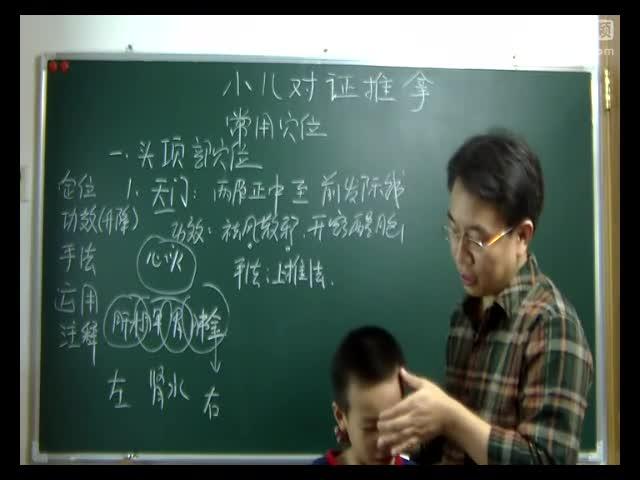 小儿对证推拿
常用穴位
一、头项部穴位
1. 天门：两眉正中至前发际成
功效：祛风散邪，开窍醒脑
手法：上推法.
定位
功效(升降)
手法
运用
注释
心火
肝
胃
左 肾水 右
.com